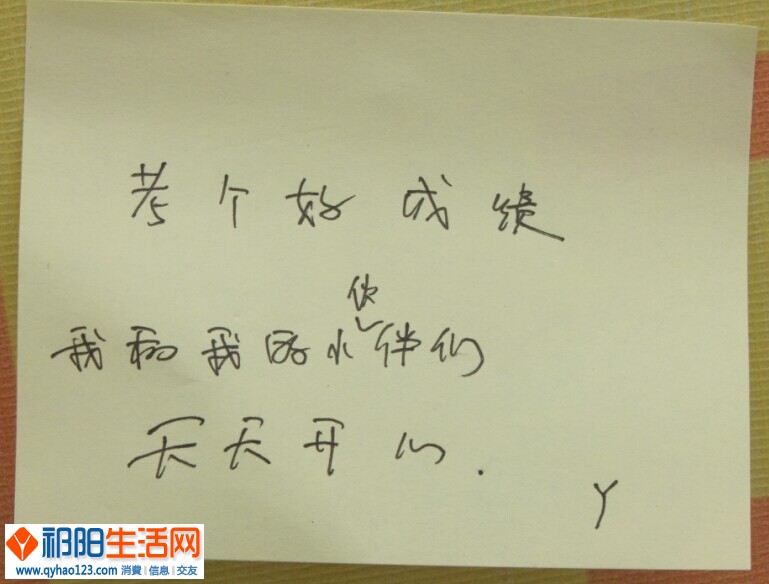 考个好成绩
我和我的小伙伴们
天天开心.
Y
祁阳生活网
www.qyhao123.com 消費|信息|交友